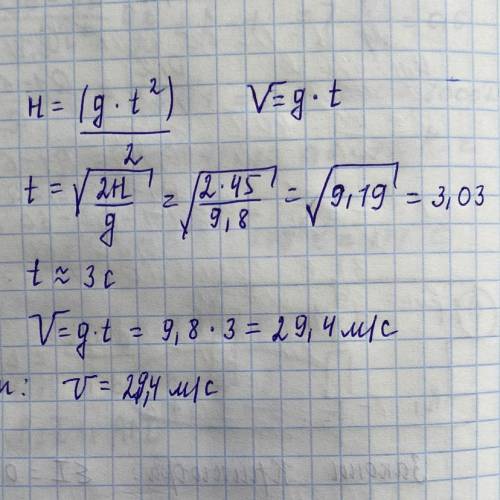 H = (g · t²) / 2    V = g · t
t = √(2H / g) = √(2 · 45 / 9,8) = √9,19 = 3,03
t ≈ 3 с
V = g · t = 9,8 · 3 = 29,4 м/с
: v = 29,4 м/с
Закони